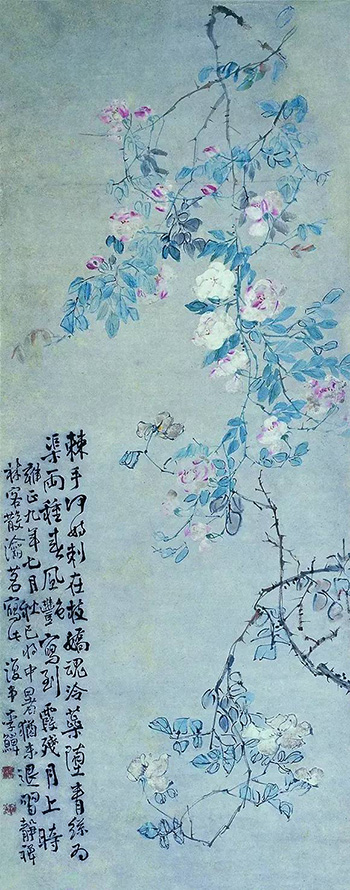 棘手何妨刺在枝嬌魂冷蘂墮青絲為
渠兩種春風艷寫到霞殘月上時
雍正九年七月秋已將中暑猶未退習靜禪
林客散瀹茗寫此 復堂李鱓